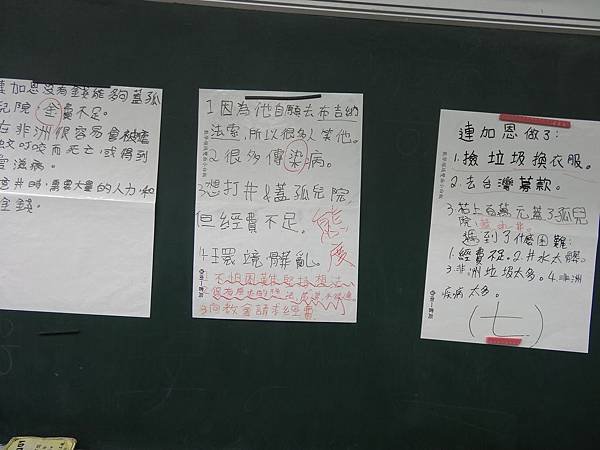 連加恩沒有錢能夠蓋孤
兒院，金費不足。
在非洲很容易會被瘧
蚊叮咬而死亡，或得到
愛滋病。
挖井時，需要大量的人力，和
金錢。
1.因為他自願去布吉納
法索，所以很多人笑他。
2.很多傳染病。
3.想打井&蓋孤兒院，
但經費不足。
態度
4.環境髒亂。
不怕困難堅持想法
3.向教會請求經費
南一書局
連加恩做了：
1.撿垃圾換衣服。
2.去台灣募款。
3.花上百萬元蓋了孤兒
院，蓋水井。
遇到了什麼困難：
1.經費不足。2.井水太髒。
3.非洲垃圾太多。4.非洲
疾病太多。
(七)
南一書局